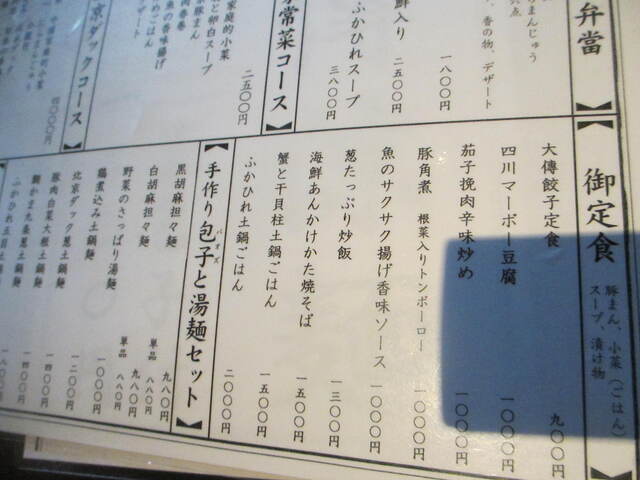 弁當
まんじゅう
、香の物、デザート
一八〇〇円
鮮入り
二五〇〇円
ふかひれスープ
三八〇〇円
常菜コース
家庭的小菜
と卵白スープ
二五〇〇円
京ダックコース
御定食
豚まん、小菜(ごはん)
スープ、漬け物
大傳餃子定食
九〇〇円
四川マーボー豆腐
一〇〇〇円
茄子挽肉辛味炒め
一〇〇〇円
豚角煮 根菜入りトンポーロー
一〇〇〇円
魚のサクサク揚げ香味ソース
一〇〇〇円
葱たっぷり炒飯
一三〇〇円
海鮮あんかけかた焼そば
一五〇〇円
蟹と干貝柱土鍋ごはん
一五〇〇円
ふかひれ土鍋ごはん
二〇〇〇円
手作り包子と湯麺セット
パオズ
黒胡麻担々麺
九八〇円
白胡麻担々麺
単品 八八〇円
九八〇円
野菜のさっぱり湯麺
単品 八八〇円
鶏煮込み土鍋麺
一二〇〇円
北京ダック葱土鍋麺
一四〇〇円
豚肉白菜大根土鍋麺
一四〇〇円